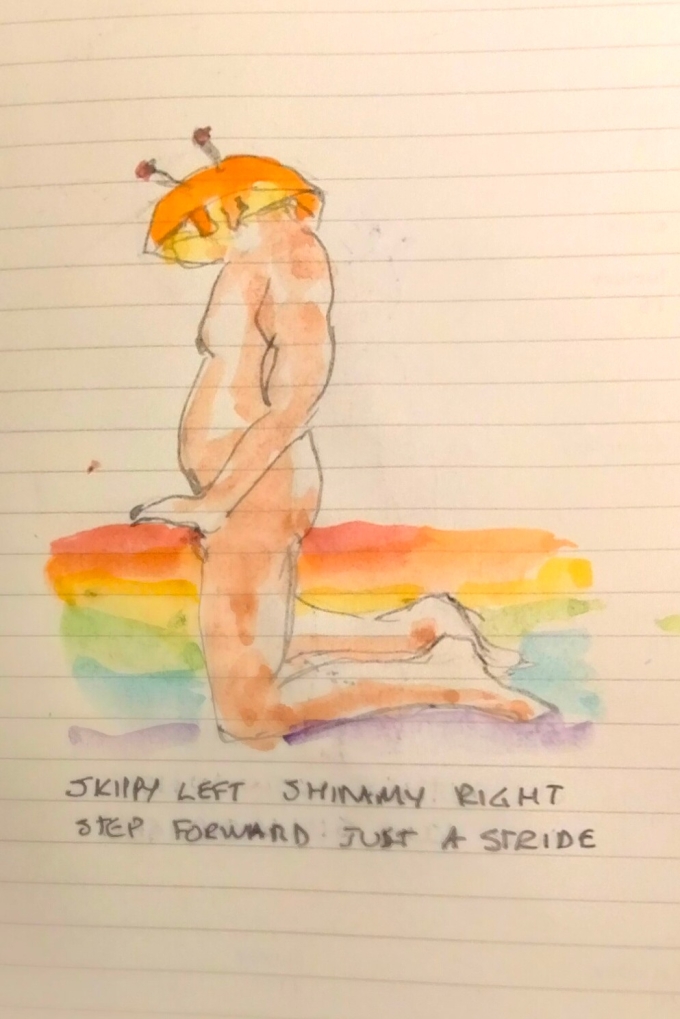 SKIPPY LEFT SHIMMY RIGHT
STEP FORWARD JUST A STRIDE